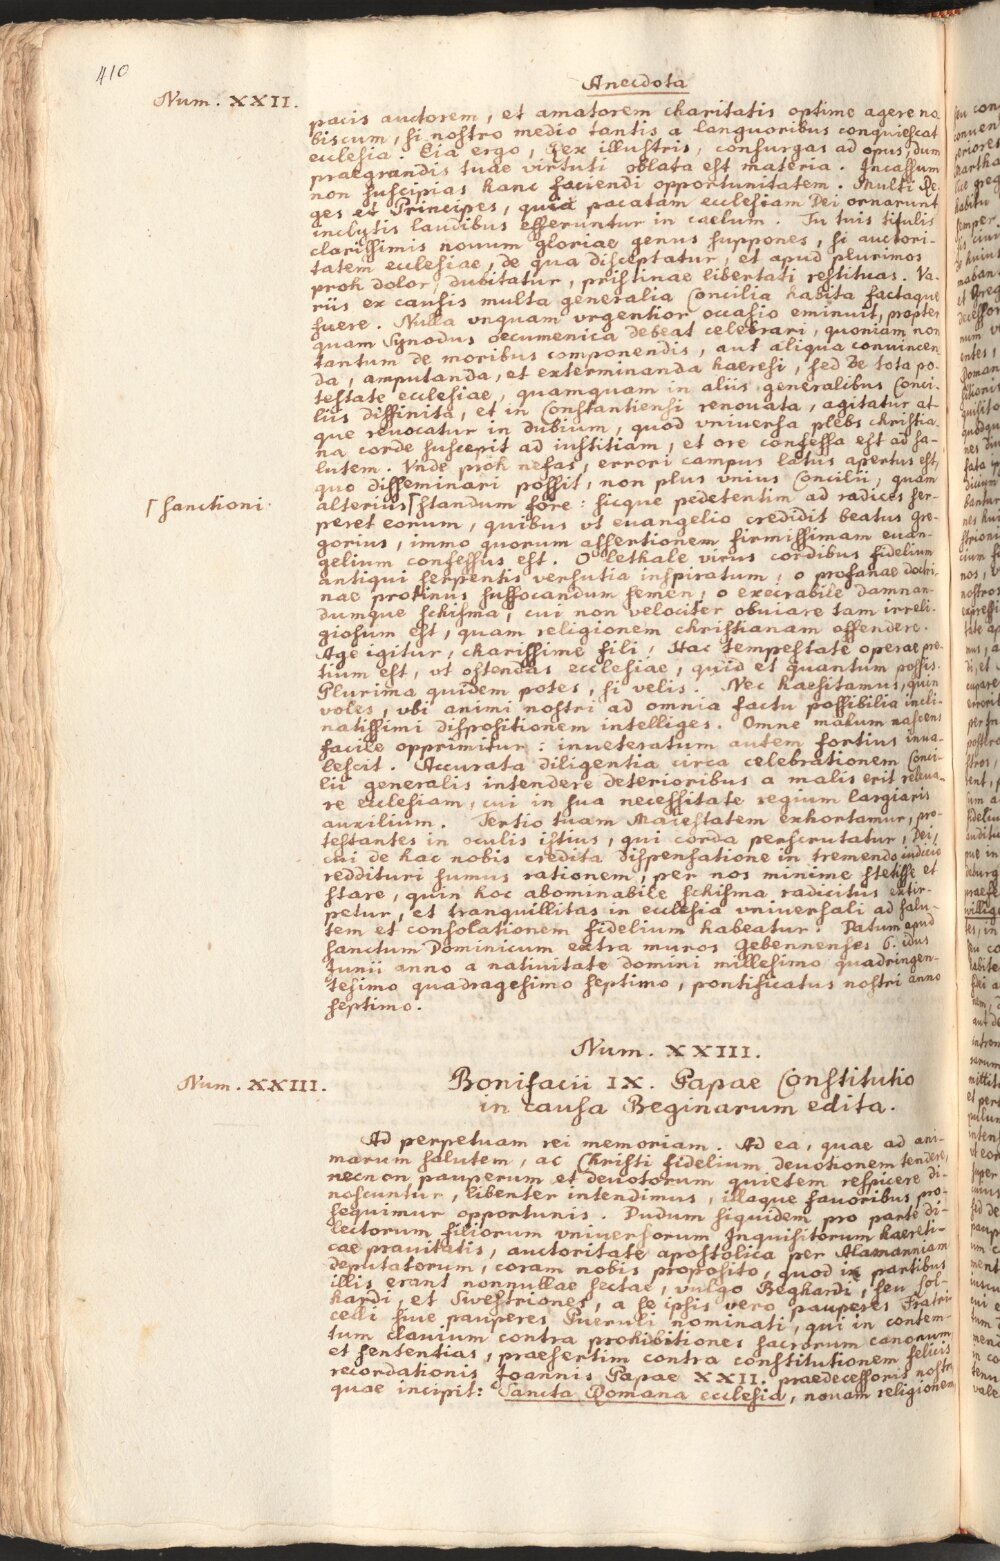 410
Anecdota
Num. XXII.
pacis auctorem, et amatorem charitatis optime agere no
biscum, si nostro medio tantis a languoribus conquiescat
ecclesia. Eia ergo, Rex illustris, consurgas ad opus, dum
praegrandis tuae virtuti oblata est materia. Incassum
non suscipias hanc faciendi opportunitatem. Multi Re-
ges et Principes, quia pacatam ecclesiam Dei ornarunt
inclytis laudibus efferuntur in caelum. Tu tuis titulis
clarissimis nouum gloriae genus suppones, si auctori-
tatem ecclesiae, de qua disceptatur, et apud plurimos
proh dolor, dubitatur, pristinae libertati restituas. Va-
riis ex causis multa generalia Concilia habita factaque
fuere. Nulla vnquam vrgentior occasio eminuit, propter
quam Synodus oecumenica debeat celebrari, quoniam non
tantum de moribus componendis, aut aliqua conuincen
da, amputanda, et exterminanda haeresi, sed de tota po-
testate ecclesiae, quamquam in aliis generalibus Conci-
liis diffinita, et in Constantiensi renouata, agitatur at-
que reuocatur in dubium, quod vniuersa plebs christia-
na corde suscepit ad iustitiam, et ore confessa est ad sa-
lutem. Vnde proh nefas, errori campus latus apertus est,
quo disseminari possit, non plus vnius Concilii, quam
⌈sanctioni.
alterius ⌈standum fore: sicque pedetentim ad radices ser-
peret eorum, quibus vt euangelio credidit beatus Gre-
gorius, immo quorum assertionem firmissimam euan-
gelium confessus est. O lethale virus cordibus fidelium
antiqui serpentis versutia inspiratum, o profanae doctri-
nae protinus suffocandum semen, o execrabile damnan-
dumque schisma, cui non velociter obuiare tam irreli-
giosum est, quam religionem christianam offendere.
Age igitur, charissime fili, Hac tempestate operae pre-
tium est, vt ostendas ecclesiae, quid et quantum possis.
Plurima quidem potes, si velis. Nec haesitamus, quin
voles, vbi animi nostri ad omnia factu possibilia incli-
natissimi dispositionem intelliges. Omne malum nascens
facile opprimitur: inueteratum autem fortius inua-
lescit. Accurata diligentia circa celebrationem Conci-
lii generalis intendere deterioribus a malis erit releua-
re ecclesiam, cui in sua necessitate regium largiaris
auxilium. Tertio tuam Maiestatem exhortamur, pro-
testantes in oculis istius, qui corda perscrutatur, Dei,
cui de hac nobis credita dispensatione in tremendo iudicio
reddituri sumus rationem, per nos minime stetisse et
stare, quin hoc abominabile schisma radicitus extir-
petur, et tranquillitas in ecclesia vniuersali ad salu-
tem et consolationem fidelium habeatur. Datum apud
sanctum Dominicum extra muros Gebennenses 6. idus
Junii anno a natiuitate domini millesimo quadringen-
tesimo quadragesimo septimo, pontificatus nostri anno
septimo.
Num. XXIII.
Num. XXIII.
Bonifacii IX. Papae Constitutio
in causa Beginarum edita.
Ad perpetuam rei memoriam. Ad ea, quae ad ani-
marum salutem, ac Christi fidelium deuotionem tendere,
necnon pauperum et deuotorum quietem respicere di-
noscuntur, libenter intendimus, illaque fauoribus pro-
sequimur opportunis. Dudum siquidem pro parte di-
lectorum filiorum vniuersorum Inquisitorum haereti-
cae prauitatis, auctoritate apostolica per Alamanniam
deputatorum, coram nobis proposito, quod in partibus
illis erant nonnullae sectae, vulgo Beghardi, seu Lol-
hardi, et Swestriones, a se ipsis vero pauperes Fratri
celli siue pauperes Pueruli nominati, qui in contem-
tum clauium contra prohibitiones sacrorum canonum
et sententias, praesertim contra constitutionem felicis
recordationis Joannis Papae XXII. praedecessoris nostri
quae incipit: Sancta Romana ecclesia, nouam religionem